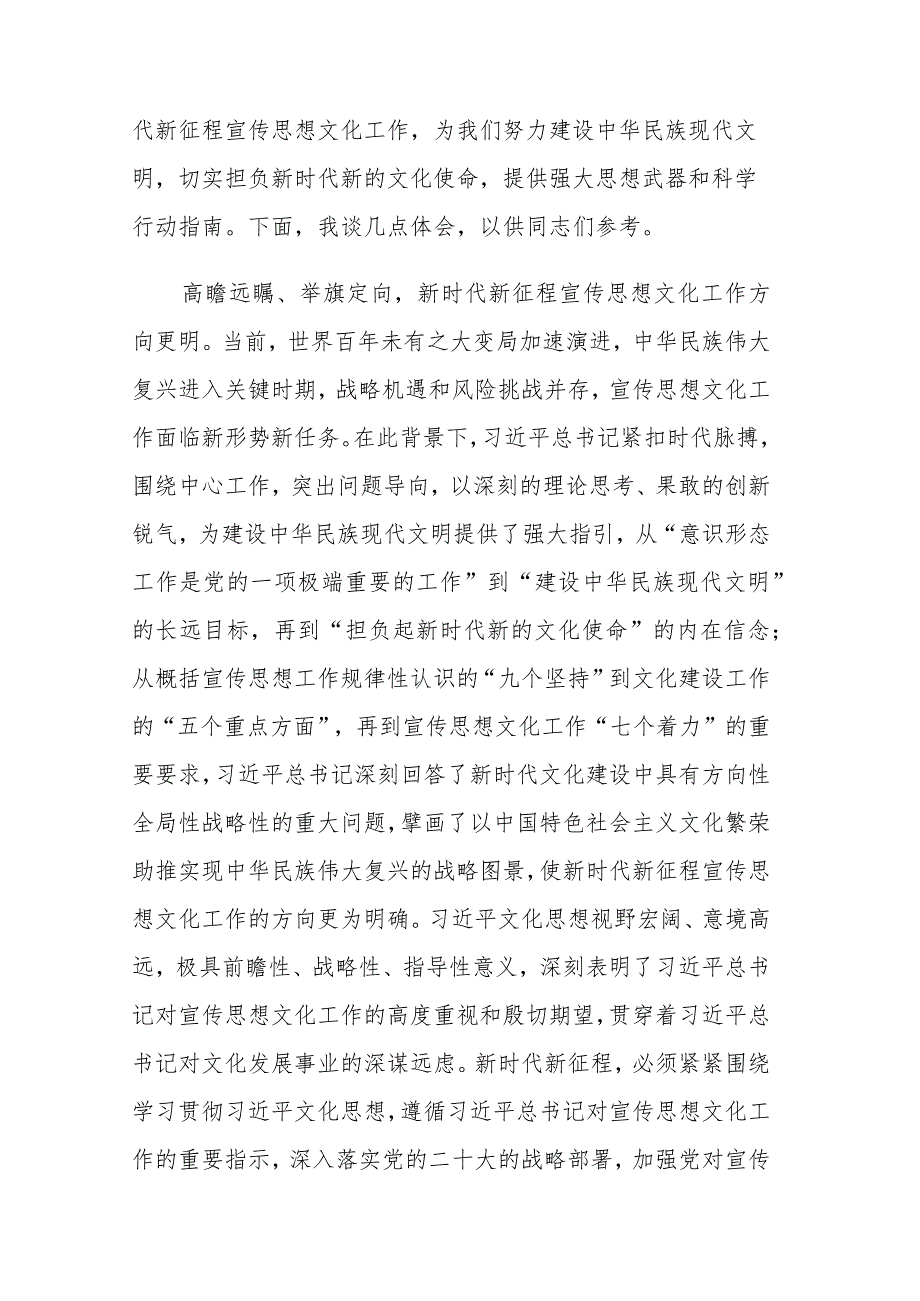 代新征程宣传思想文化工作，为我们努力建设中华民族现代文
明，切实担负新时代新的文化使命，提供强大思想武器和科学
行动指南。下面，我谈几点体会，以供同志们参考。
高瞻远瞩、举旗定向，新时代新征程宣传思想文化工作方
向更明。当前，世界百年未有之大变局加速演进，中华民族伟大
复兴进入关键时期，战略机遇和风险挑战并存，宣传思想文化工
作面临新形势新任务。在此背景下，习近平总书记紧扣时代脉搏，
围绕中心工作，突出问题导向，以深刻的理论思考、果敢的创新
锐气，为建设中华民族现代文明提供了强大指引，从“意识形态
工作是党的一项极端重要的工作”到“建设中华民族现代文明”
的长远目标，再到“担负起新时代新的文化使命”的内在信念；
从概括宣传思想工作规律性认识的“九个坚持”到文化建设工作
的“五个重点方面”，再到宣传思想文化工作“七个着力”的重
要要求，习近平总书记深刻回答了新时代文化建设中具有方向性
全局性战略性的重大问题，擘画了以中国特色社会主义文化繁荣
助推实现中华民族伟大复兴的战略图景，使新时代新征程宣传思
想文化工作的方向更为明确。习近平文化思想视野宏阔、意境高
远，极具前瞻性、战略性、指导性意义，深刻表明了习近平总书
记对宣传思想文化工作的高度重视和殷切期望，贯穿着习近平总
书记对文化发展事业的深谋远虑。新时代新征程，必须紧紧围绕
学习贯彻习近平文化思想，遵循习近平总书记对宣传思想文化工
作的重要指示，深入落实党的二十大的战略部署，加强党对宣传